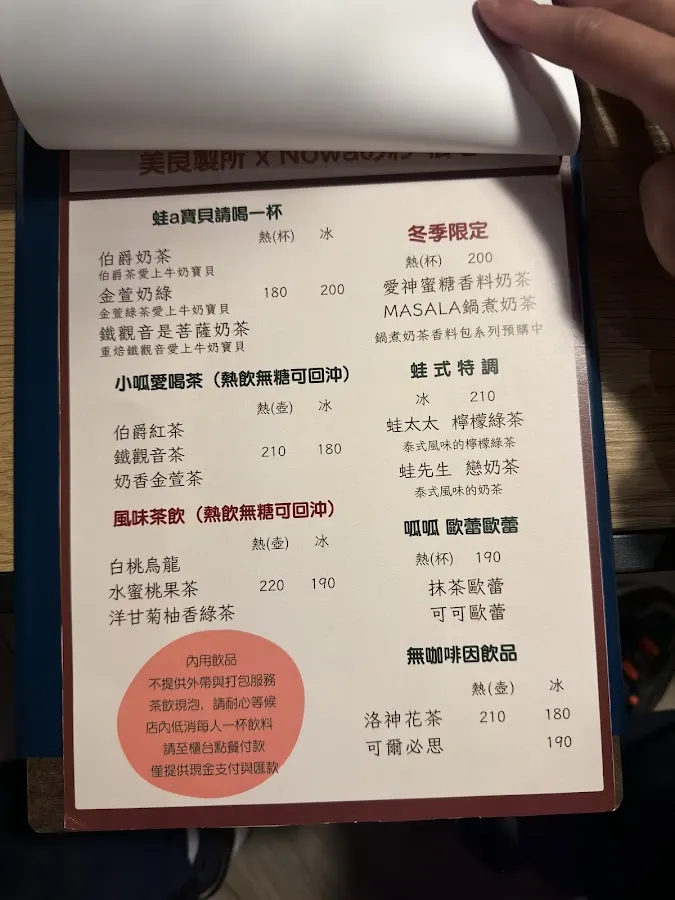 美良製所 x Nowa
蛙a寶貝請喝一杯
熱(杯) 冰
伯爵奶茶
伯爵茶愛上牛奶寶貝
金萱奶綠 180 200
金萱綠茶愛上牛奶寶貝
鐵觀音是菩薩奶茶
重焙鐵觀音愛上牛奶寶貝
小呱愛喝茶（熱飲無糖可回沖）
熱(壺) 冰
伯爵紅茶
鐵觀音茶 210 180
奶香金萱茶
風味茶飲（熱飲無糖可回沖）
熱(壺) 冰
白桃烏龍
水蜜桃果茶 220 190
洋甘菊柚香綠茶
內用飲品
不提供外帶與打包服務
茶飲現泡，請耐心等候
店內低消每人一杯飲料
請至櫃台點餐付款
僅提供現金支付與匯款
冬季限定
熱(杯) 200
愛神蜜糖香料奶茶
MASALA鍋煮奶茶
鍋煮奶茶香料包系列預購中
蛙式特調
冰 210
蛙太太 檸檬綠茶
泰式風味的檸檬綠茶
蛙先生 戀奶茶
泰式風味的奶茶
呱呱 歐蕾歐蕾
熱(杯) 190
抹茶歐蕾
可可歐蕾
無咖啡因飲品
熱(壺) 冰
洛神花茶 210 180
可爾必思 190